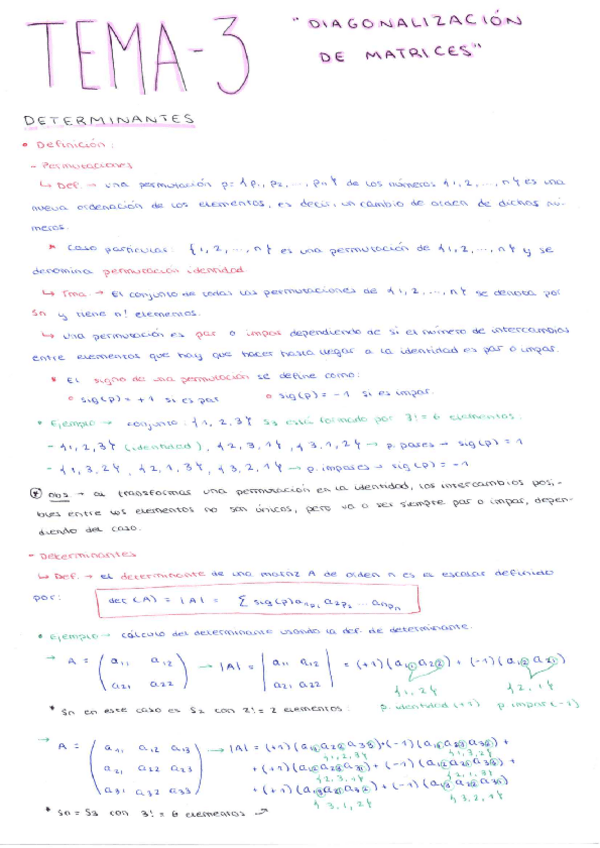 TEMA-3
"DIAGONALIZACIÓN
DE MATRICES"
DETERMINANTES
• Definición:
- Permutaciones
↳ Def. → una permutación p = {p₁, p₂, ..., pₙ} de los números {1, 2, ..., n} es una
nueva ordenación de los elementos, es decir, un cambio de orden de dichos nú-
meros.
* Caso particular: {1, 2, ..., n} es una permutación de {1, 2, ..., n} y se
denomina permutación identidad.
↳ Tma. → El conjunto de todas las permutaciones de {1, 2, ..., n} se denota por
Sn y tiene n! elementos.
↳ Una permutación es par o impar dependiendo de si el número de intercambios
entre elementos que hay que hacer hasta llegar a la identidad es par o impar.
* El signo de una permutación se define como:
° sig(p) = +1 si es par ° sig(p) = -1 si es impar.
* Ejemplo → conjunto: {1, 2, 3} S₃ está formado por 3! = 6 elementos:
- {1, 2, 3} (identidad), {2, 3, 1}, {3, 1, 2} → p. pares → sig(p) = 1
- {1, 3, 2}, {2, 1, 3}, {3, 2, 1} → p. impares → sig(p) = -1
* obs → al transformas una permutación en la identidad, los intercambios posi-
bles entre los elementos no son únicos, pero va a ser siempre par o impar, depen-
diendo del caso.
- Determinantes
↳ Def. → el determinante de una matriz A de orden n es el escalar definido
por: det (A) = |A| = Σ sig(p) a₁p₁ a₂p₂ ... aₙpₙ
* Ejemplo → cálculo del determinante usando la def. de determinante.
→ A = ( a₁₁ a₁₂ ) → |A| = | a₁₁ a₁₂ | = (+1)(a₁₁a₂₂) + (-1)(a₁₂a₂₁)
a₂₁ a₂₂ a₂₁ a₂₂ {1, 2} {2, 1}
* Sn en este caso es S₂ con 2! = 2 elementos: p. identidad (+1) p. impar (-1)
→ A = ( a₁₁ a₁₂ a₁₃ ) → |A| = (+1)(a₁₁a₂₂a₃₃) + (-1)(a₁₁a₂₃a₃₂) +
{1, 2, 3} {1, 3, 2}
a₂₁ a₂₂ a₂₃ +(+1)(a₁₂a₂₃a₃₁) + (-1)(a₁₂a₂₁a₃₃) +
{2, 3, 1} {2, 1, 3}
a₃₁ a₃₂ a₃₃ +(+1)(a₁₃a₂₁a₃₂) + (-1)(a₁₃a₂₂a₃₁)
{3, 1, 2} {3, 2, 1}
* Sn = S₃ con 3! = 6 elementos